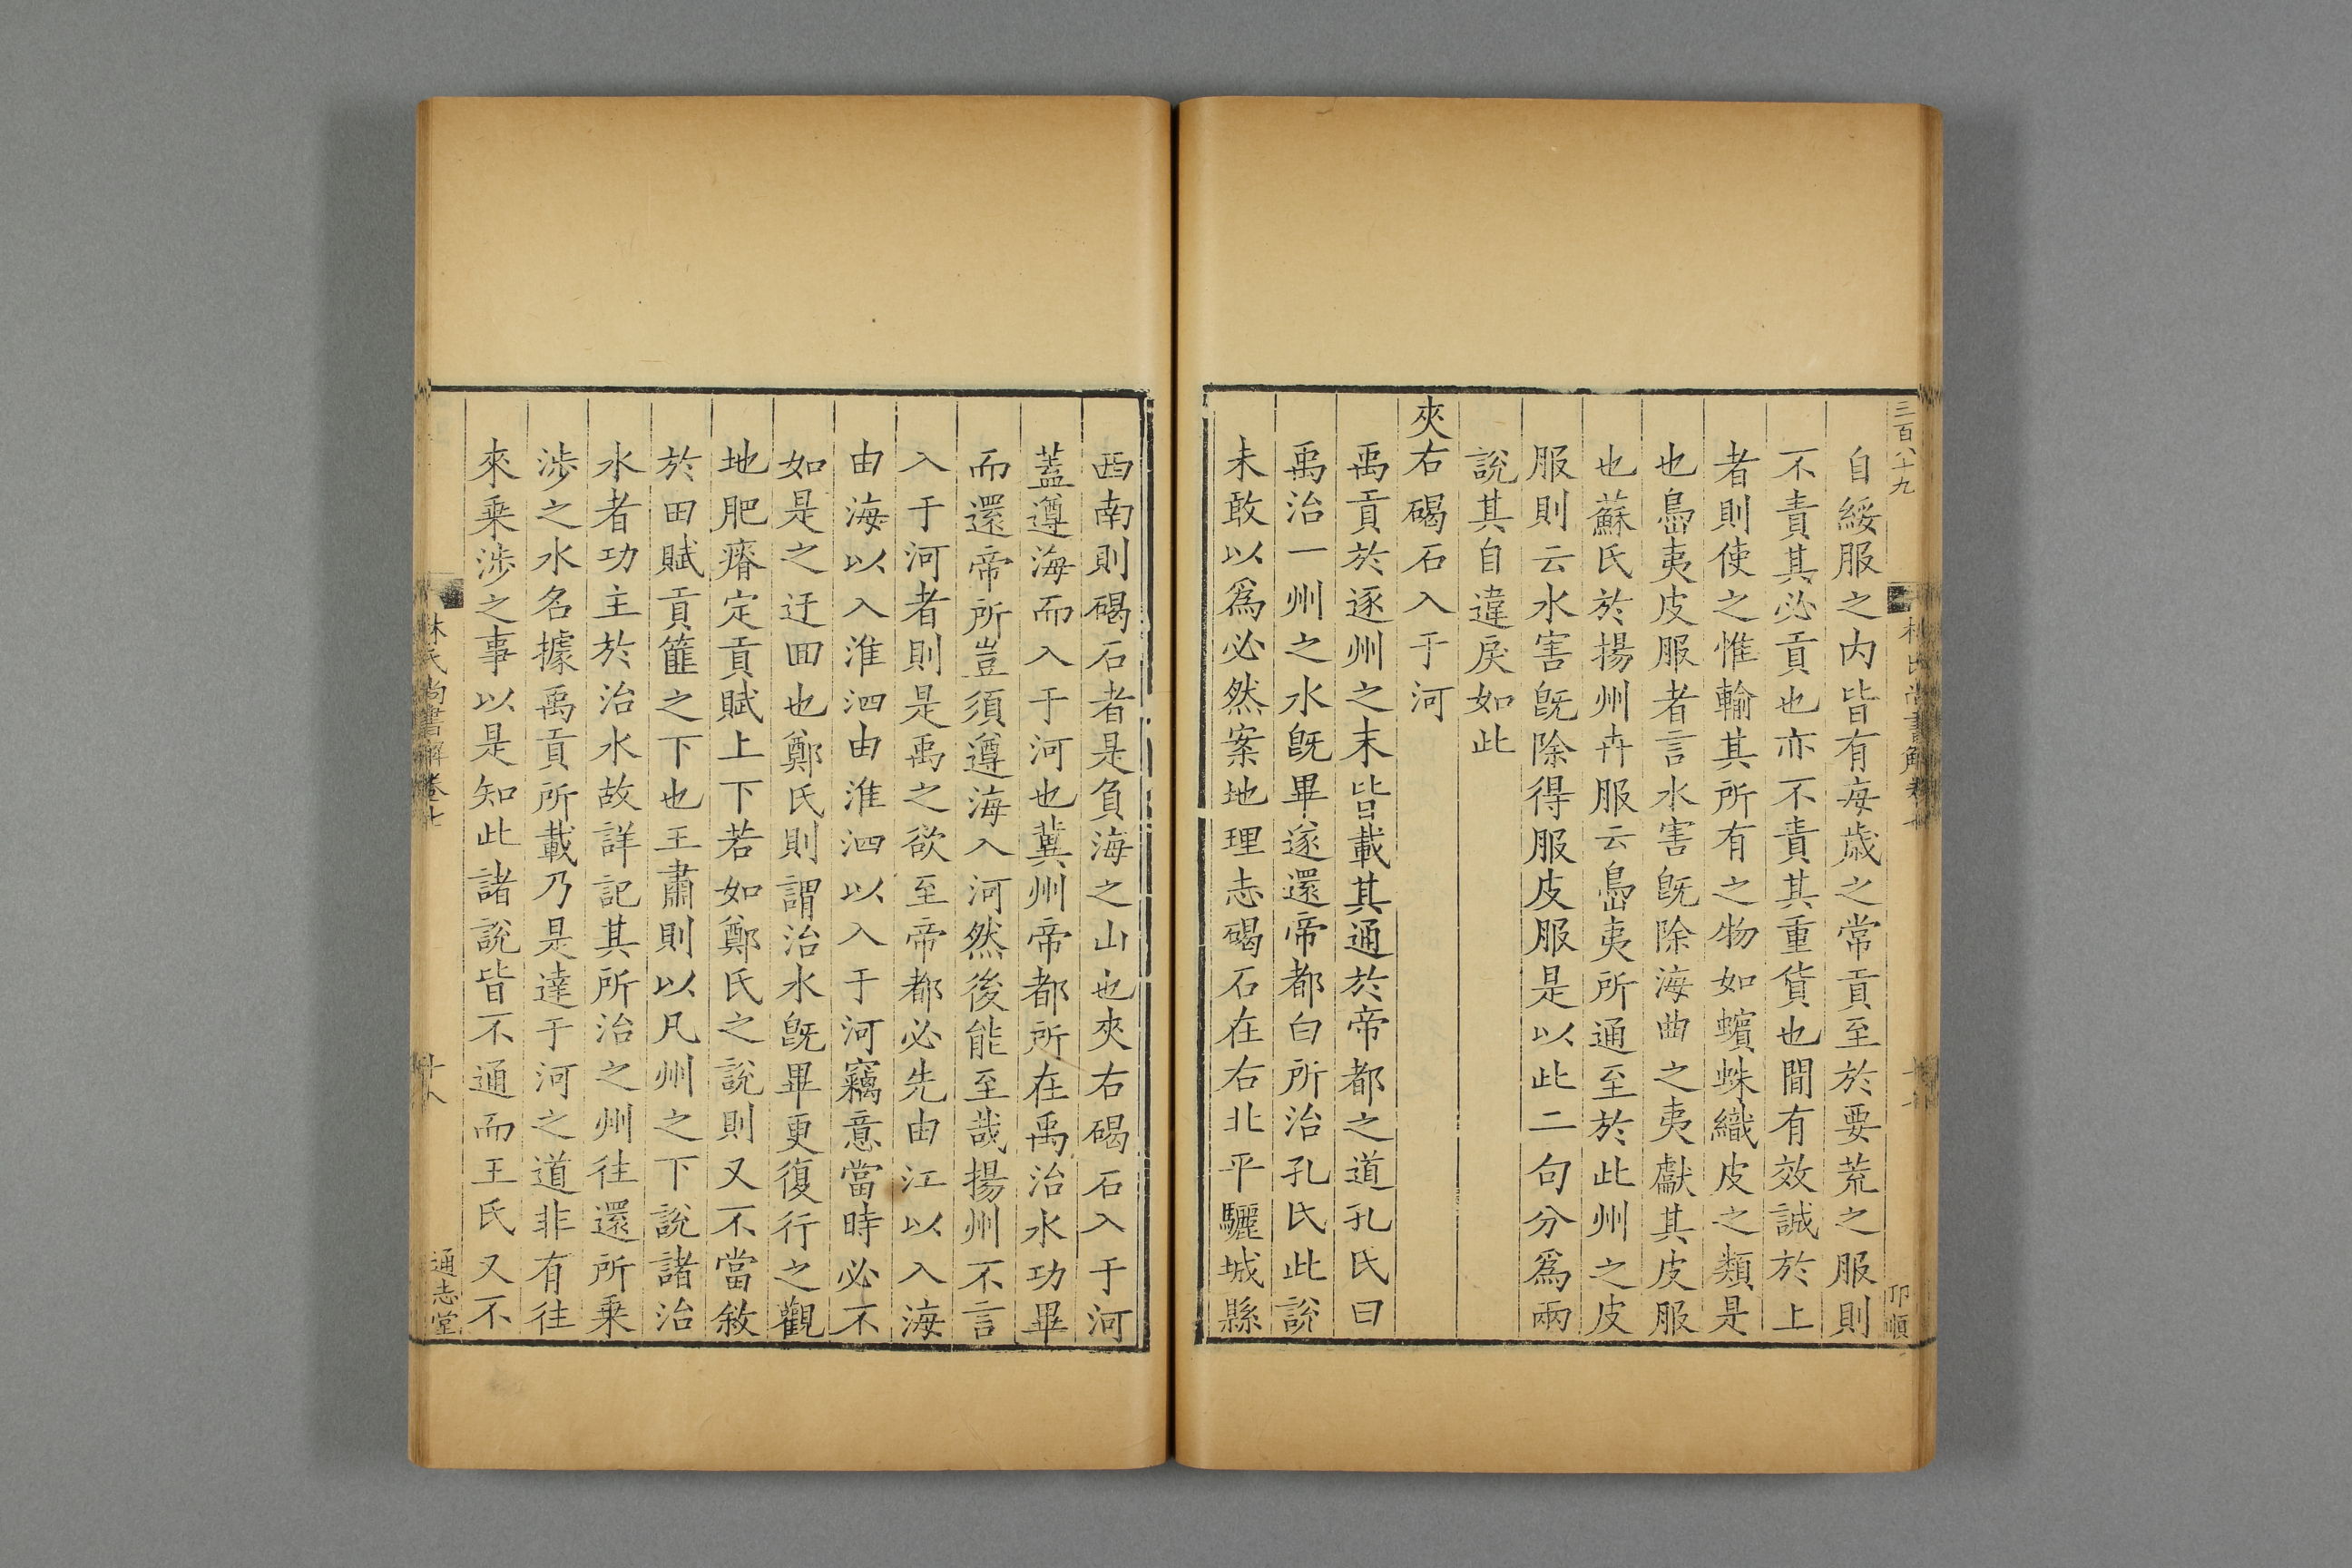 三百八十九
自綏服之內皆有每歲之常貢至於要荒之服則
不責其必貢也亦不責其重貨也間有效誠於上
者則使之惟輸其所有之物如蠙蛛織皮之類是
也島夷皮服者言水害旣除海曲之夷獻其皮服
也蘇氏於揚州卉服云島夷所通至於此州之皮
服則云水害旣除得服皮服是以此二句分爲兩
說其自違戾如此
夾右碣石入于河
禹貢於逐州之末皆載其通於帝都之道孔氏曰
禹治一州之水旣畢遂還帝都白所治孔氏此說
未敢以爲必然案地理志碣石在右北平驪城縣
西南則碣石者是負海之山也夾右碣石入于河
蓋遵海而入于河也冀州帝都所在禹治水功畢
而還帝所豈須遵海入河然後能至哉揚州不言
入于河者則是禹之欲至帝都必先由江以入海
由海以入淮泗由淮泗以入于河竊意當時必不
如是之迂回也鄭氏則謂治水旣畢更復行之觀
地肥瘠定貢賦上下若如鄭氏之說則又不當敘
於田賦貢篚之下也王肅則以凡州之下說諸治
水者功主於治水故詳記其所治之州往還所乗
涉之水名據禹貢所載乃是達于河之道非有往
來乗涉之事以是知此諸說皆不通而王氏又不
林氏尚書解卷七
十八
通志堂